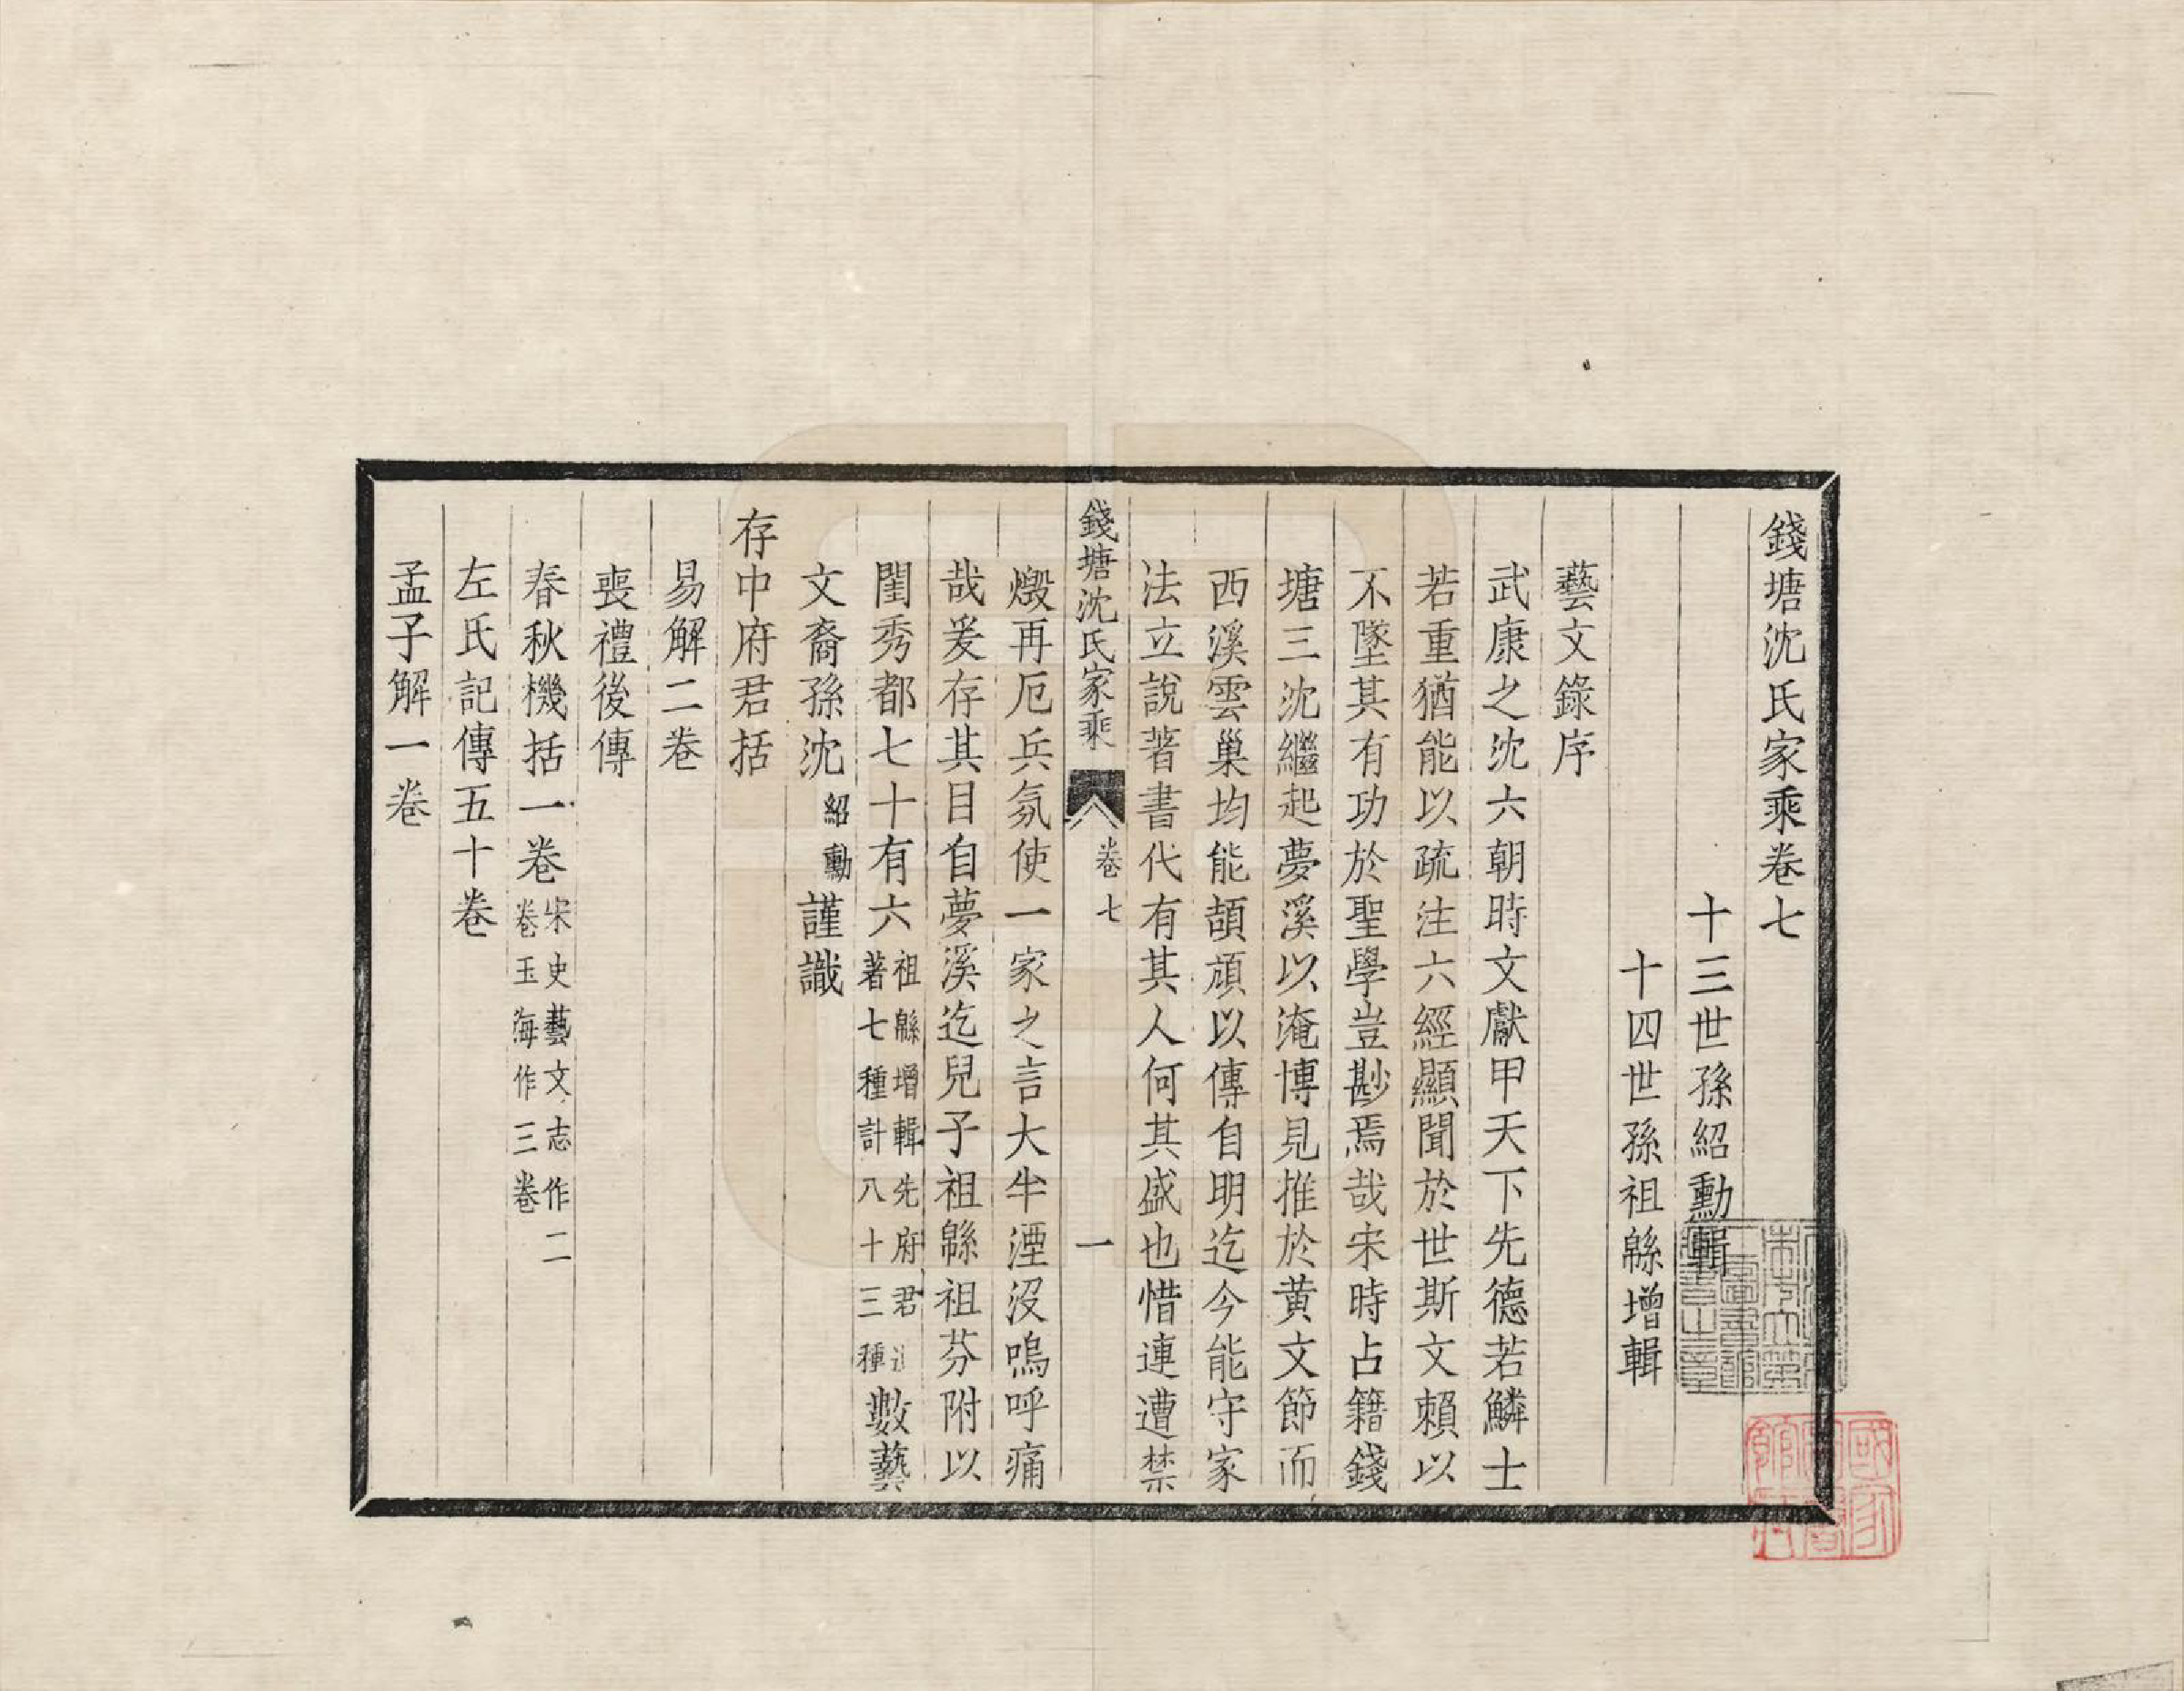 錢塘沈氏家乘卷七
十三世孫紹勳輯
十四世孫祖緜增輯
藝文錄序
武康之沈六朝時文獻甲天下先德若鱗士
若重猶能以疏注六經顯聞於世斯文賴以
不墜其有功於聖學豈尠焉哉宋時占籍錢
塘三沈繼起夢溪以淹博見推於黄文節而
西溪雲巢均能頡頏以傳自明迄今能守家
法立說著書代有其人何其盛也惜連遭禁
錢塘沈氏家乘
卷七
一
燬再厄兵氛使一家之言大半湮沒嗚呼痛
哉爰存其目自夢溪迄兒子祖緜祖芬附以
閨秀都七十有六祖緜增輯先府君著七種計八十三種數藝
文裔孫沈紹勳謹識
存中府君括
易解二卷
喪禮後傳
春秋機括一卷宋史藝文志作二卷玉海作三卷
左氏記傳五十卷
孟子解一卷